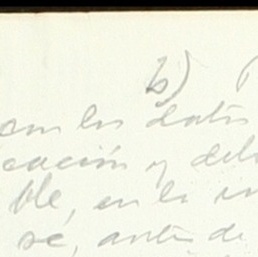 b)
con los datos
cación y deb
ble, en la in
se, antes de